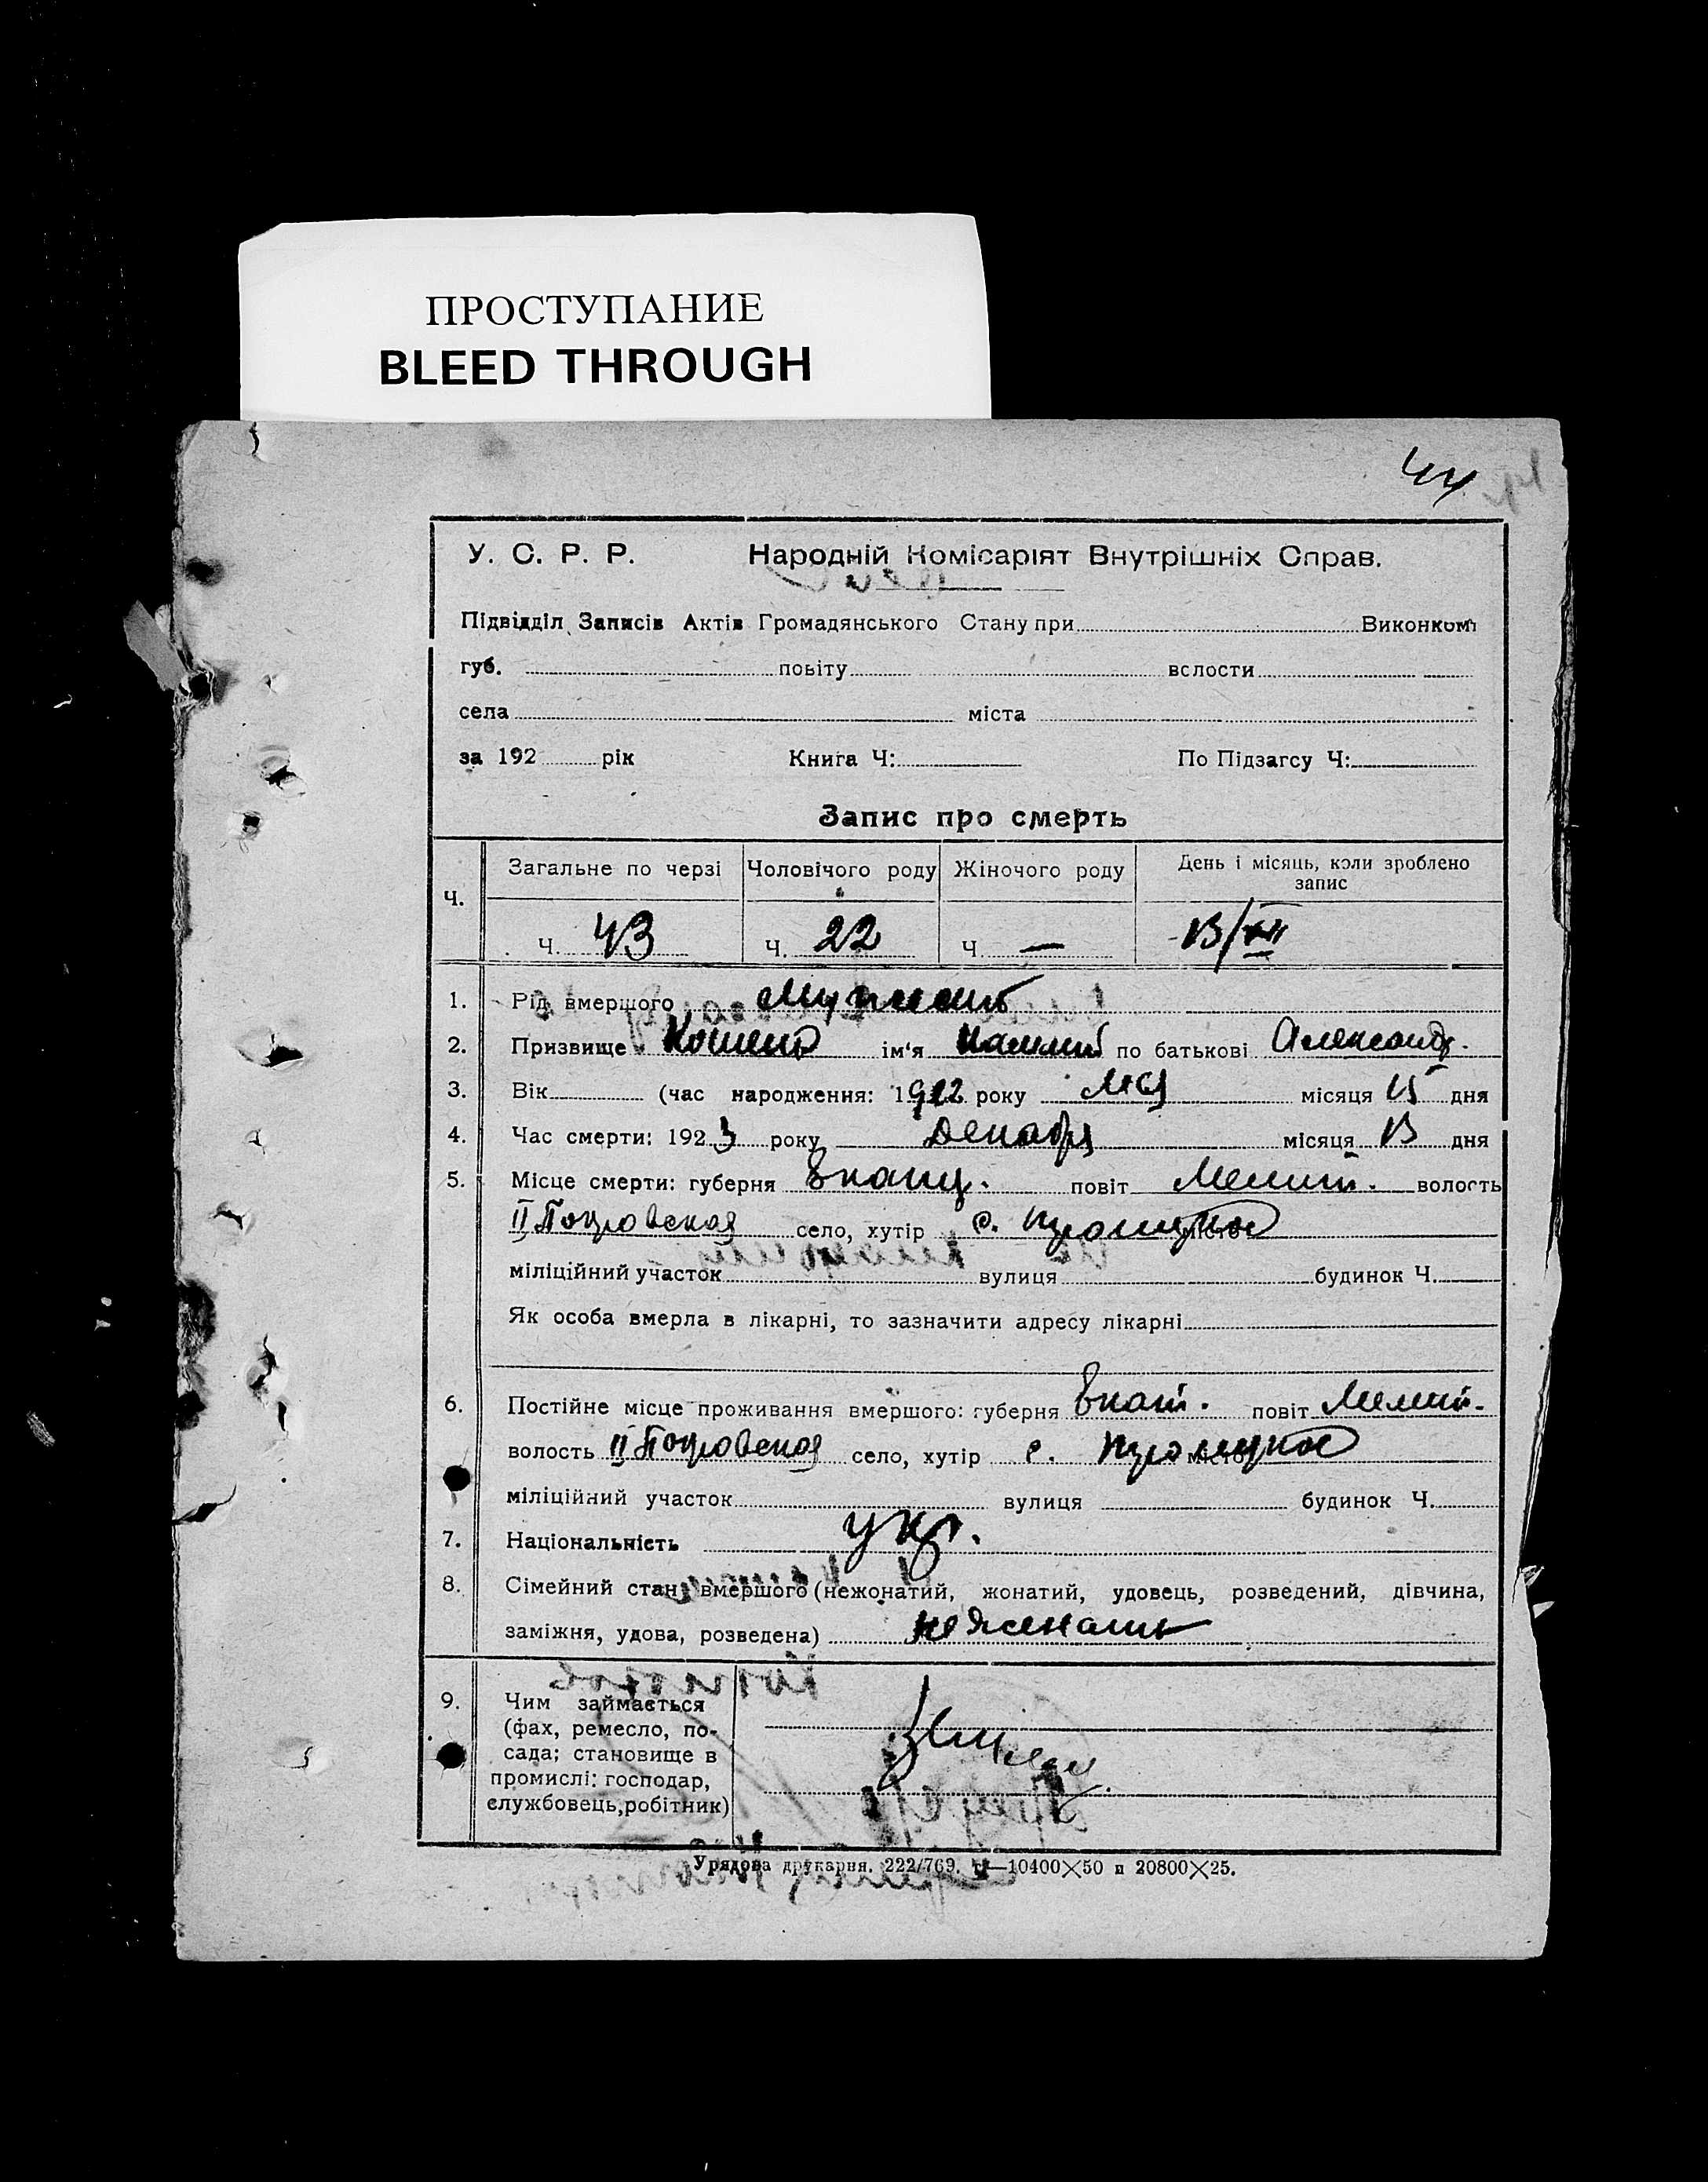 ПРОСТУПАНИЕ
BLEED THROUGH
44
У. С. Р. Р. Народній Комісаріят Внутрішніх Справ.
Підвідділ Записів Актів Громадянського Стану при Виконком
губ. повіту вслости
села міста
за 192 рік Книга Ч: По Підзагсу Ч:
Запис про смерть
Ч. Загальне по черзі Чоловічого роду Жіночого роду День і місяць, коли зроблено
запис
Ч. 43 Ч. 22 Ч. — 13/XII
1. Рід вмершого
2. Призвище ім'я по батькові Александр.
3. Вік (час народження: 1912 року мая місяця 15 дня
4. Час смерти: 1923 року Декабря місяця 13 дня
5. Місце смерти: губерня Екат. повіт Мелит. волость
II Покровская село, хутір с. місто
міліційний участок вулиця будинок Ч.
Як особа вмерла в лікарні, то зазначити адресу лікарні
6. Постійне місце проживання вмершого: губерня Екат. повіт Мелит.
волость II Покровская село, хутір с. місто
міліційний участок вулиця будинок Ч.
7. Національність укр.
8. Сімейний стан вмершого (нежонатий, жонатий, удовець, розведений, дівчина,
заміжня, удова, розведена) неженатъ
9. Чим займається
(фах, ремесло, по-
сада; становище в
промислі: господар,
службовець, робітник)
Урядова друкарня. 222/769. —10400×50 и 20800×25.